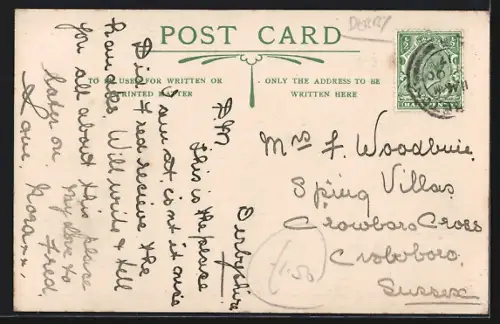 DERBY
POST CARD
TO BE USED FOR WRITTEN OR
PRINTED MATTER
ONLY THE ADDRESS TO BE
WRITTEN HERE
Derbyshire
DM
This is the place
I am at, isn't it nice
Did Fred receive the
Will write & tell
you all about this place
later on. My love to
Fred.
Love, Nora xx
Mrs F. Woodbine,
Spring Villas
Crowboro Cross
Croboro.
Sussex
1.50